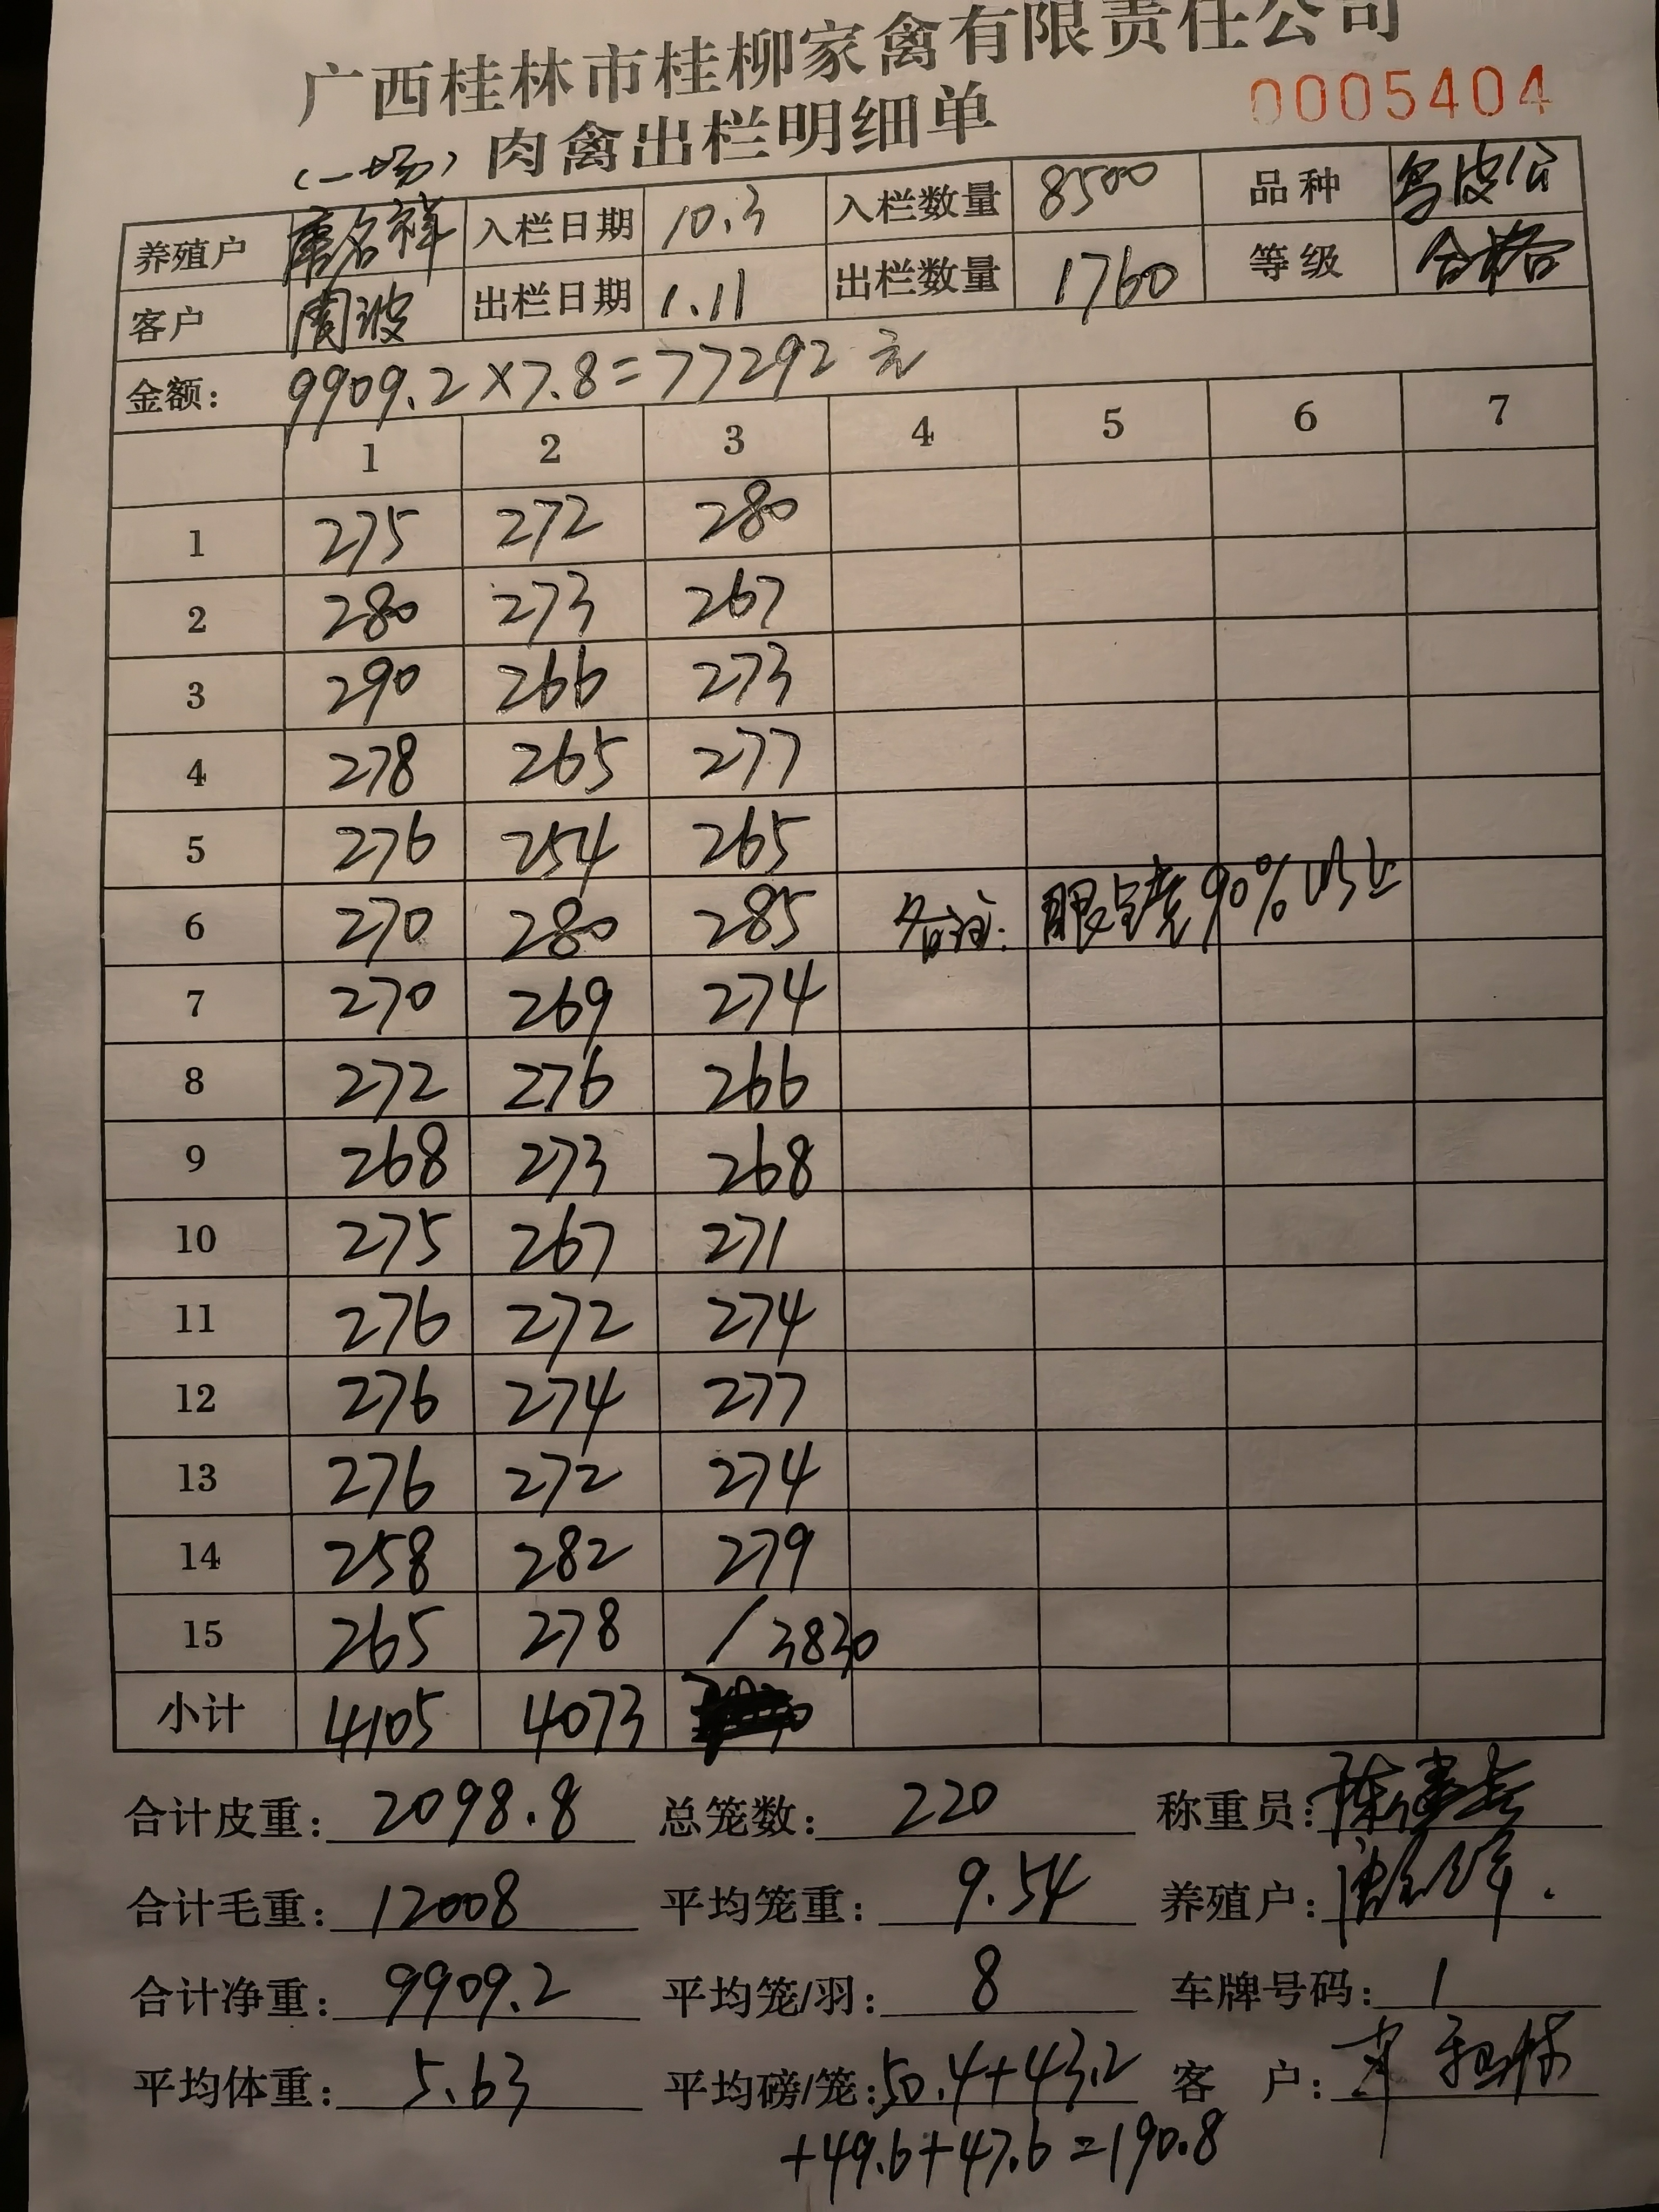 广西桂林市桂柳家禽有限责任公司
肉禽出栏明细单 0005404
(一场)
养殖户 唐名祥 入栏日期 10.3 入栏数量 8500 品种 乌皮公
客户 周波 出栏日期 1.11 出栏数量 1760 等级 合格
金额: 9909.2×7.8=77292 元
1 2 3 4 5 6 7
1 275 272 280
2 280 273 267
3 290 266 273
4 278 265 277
5 276 254 265
6 270 280 285 备注: 眼 90%以上
7 270 269 274
8 272 276 266
9 268 273 268
10 275 267 271
11 276 272 274
12 276 274 277
13 276 272 274
14 258 282 279
15 265 278 / 3830
小计 4105 4073
合计皮重: 2098.8 总笼数: 220 称重员:
合计毛重: 12008 平均笼重: 9.54 养殖户:
合计净重: 9909.2 平均笼/羽: 8 车牌号码: 1
平均体重: 5.63 平均磅/笼: 50.4+43.2 客 户:
+49.6+47.6=190.8